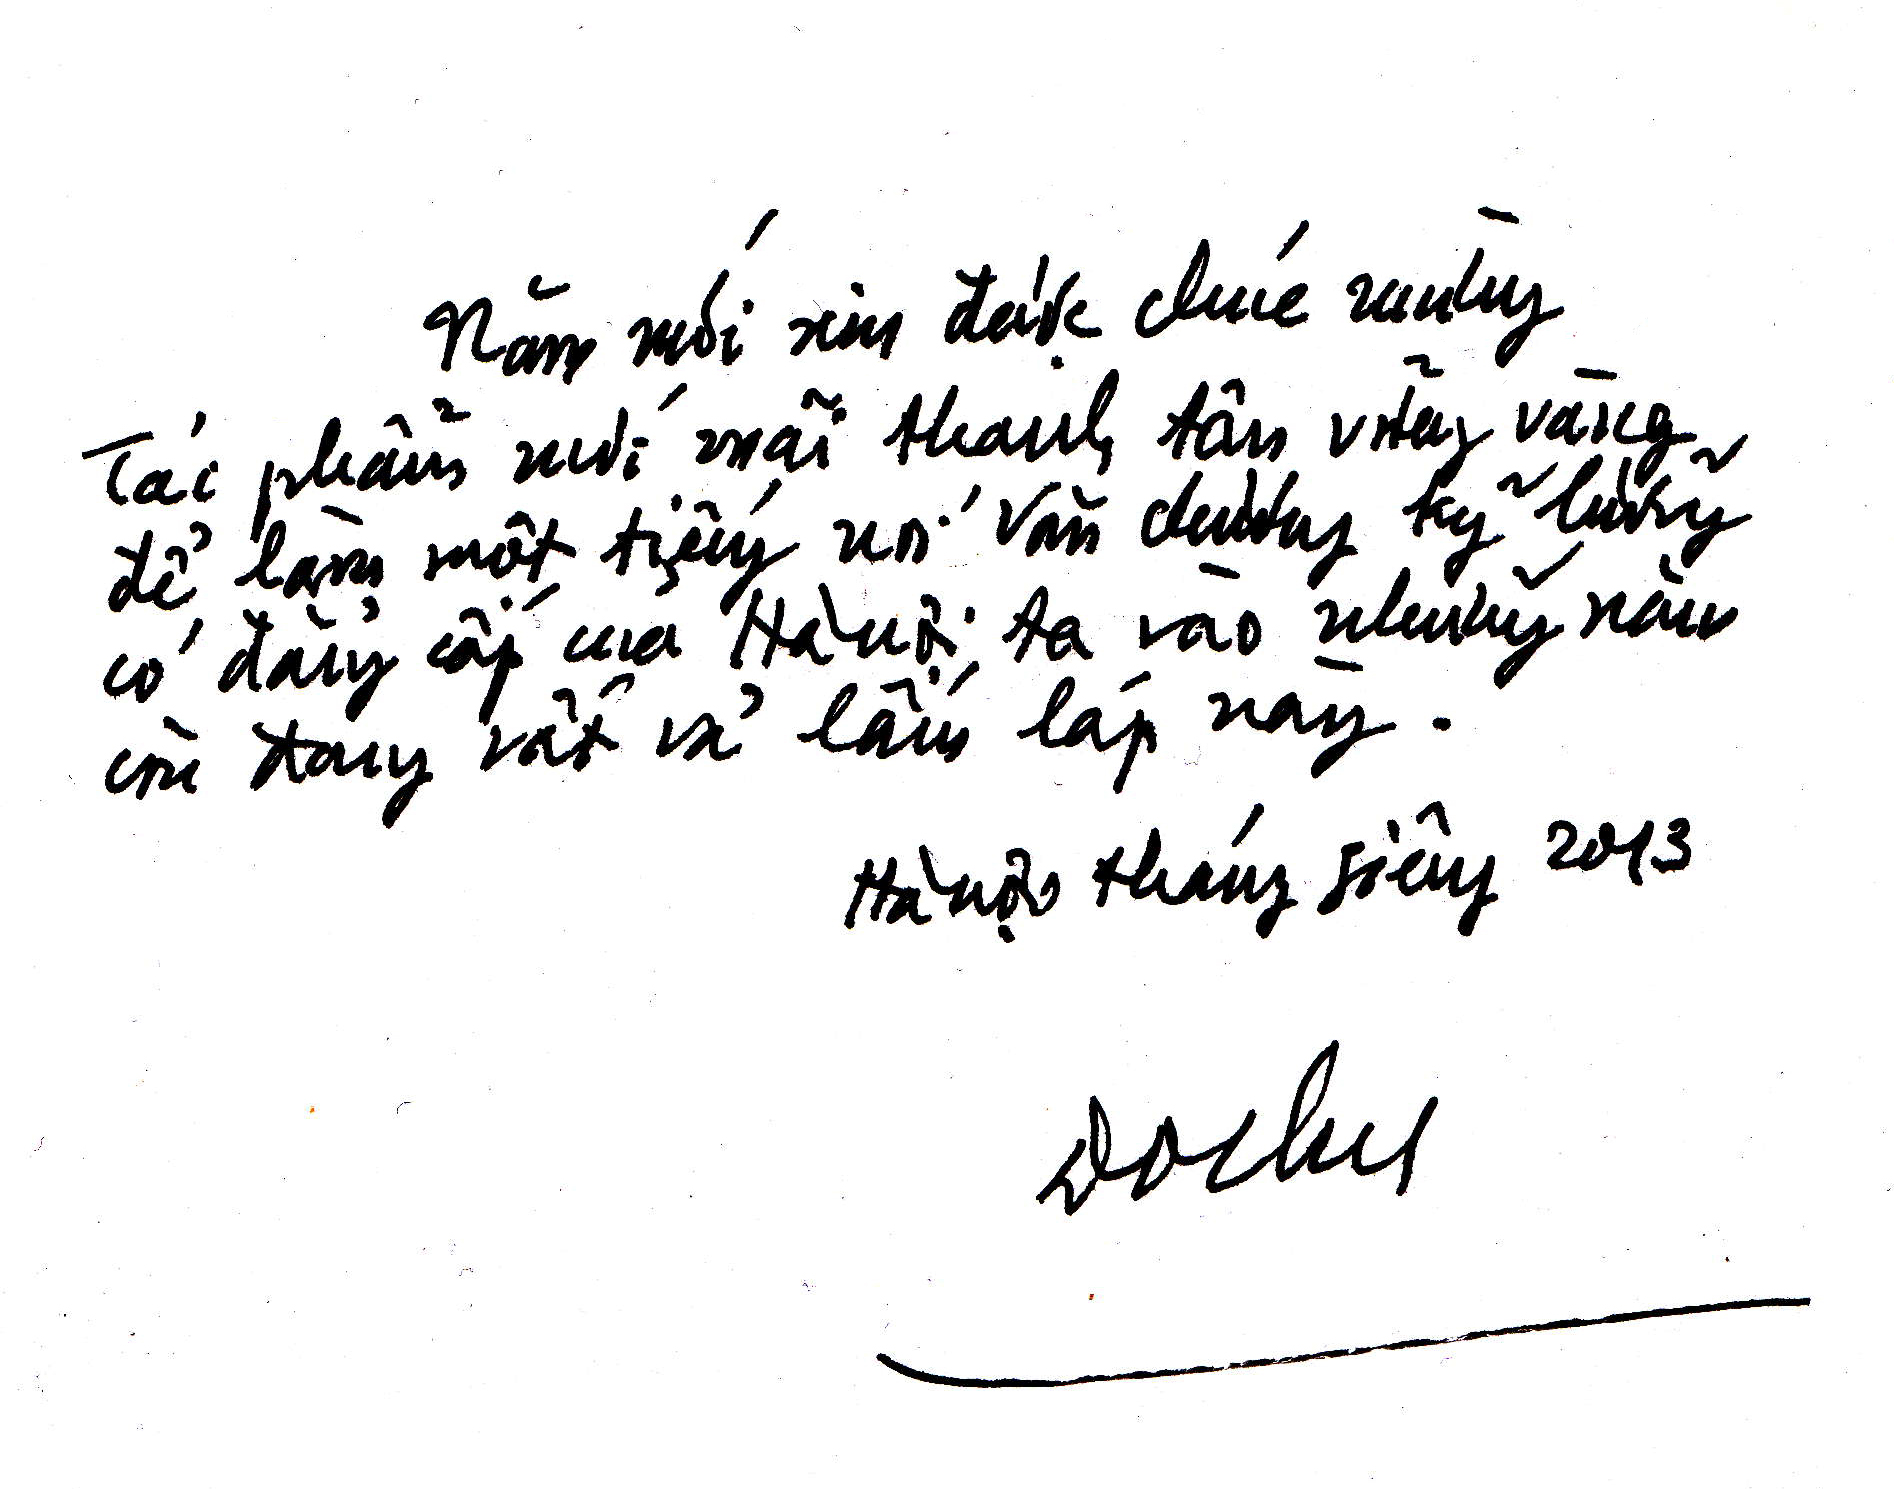 Năm mới xin được chúc mừng
Tác phẩm mới mãi thanh tân vững vàng
để làm một tiếng nói văn chương kỹ lưỡng
có đẳng cấp của Hà Nội ta vào những năm
còn đang vất vả lấm láp này.
Hà Nội tháng giêng 2013
Dochu